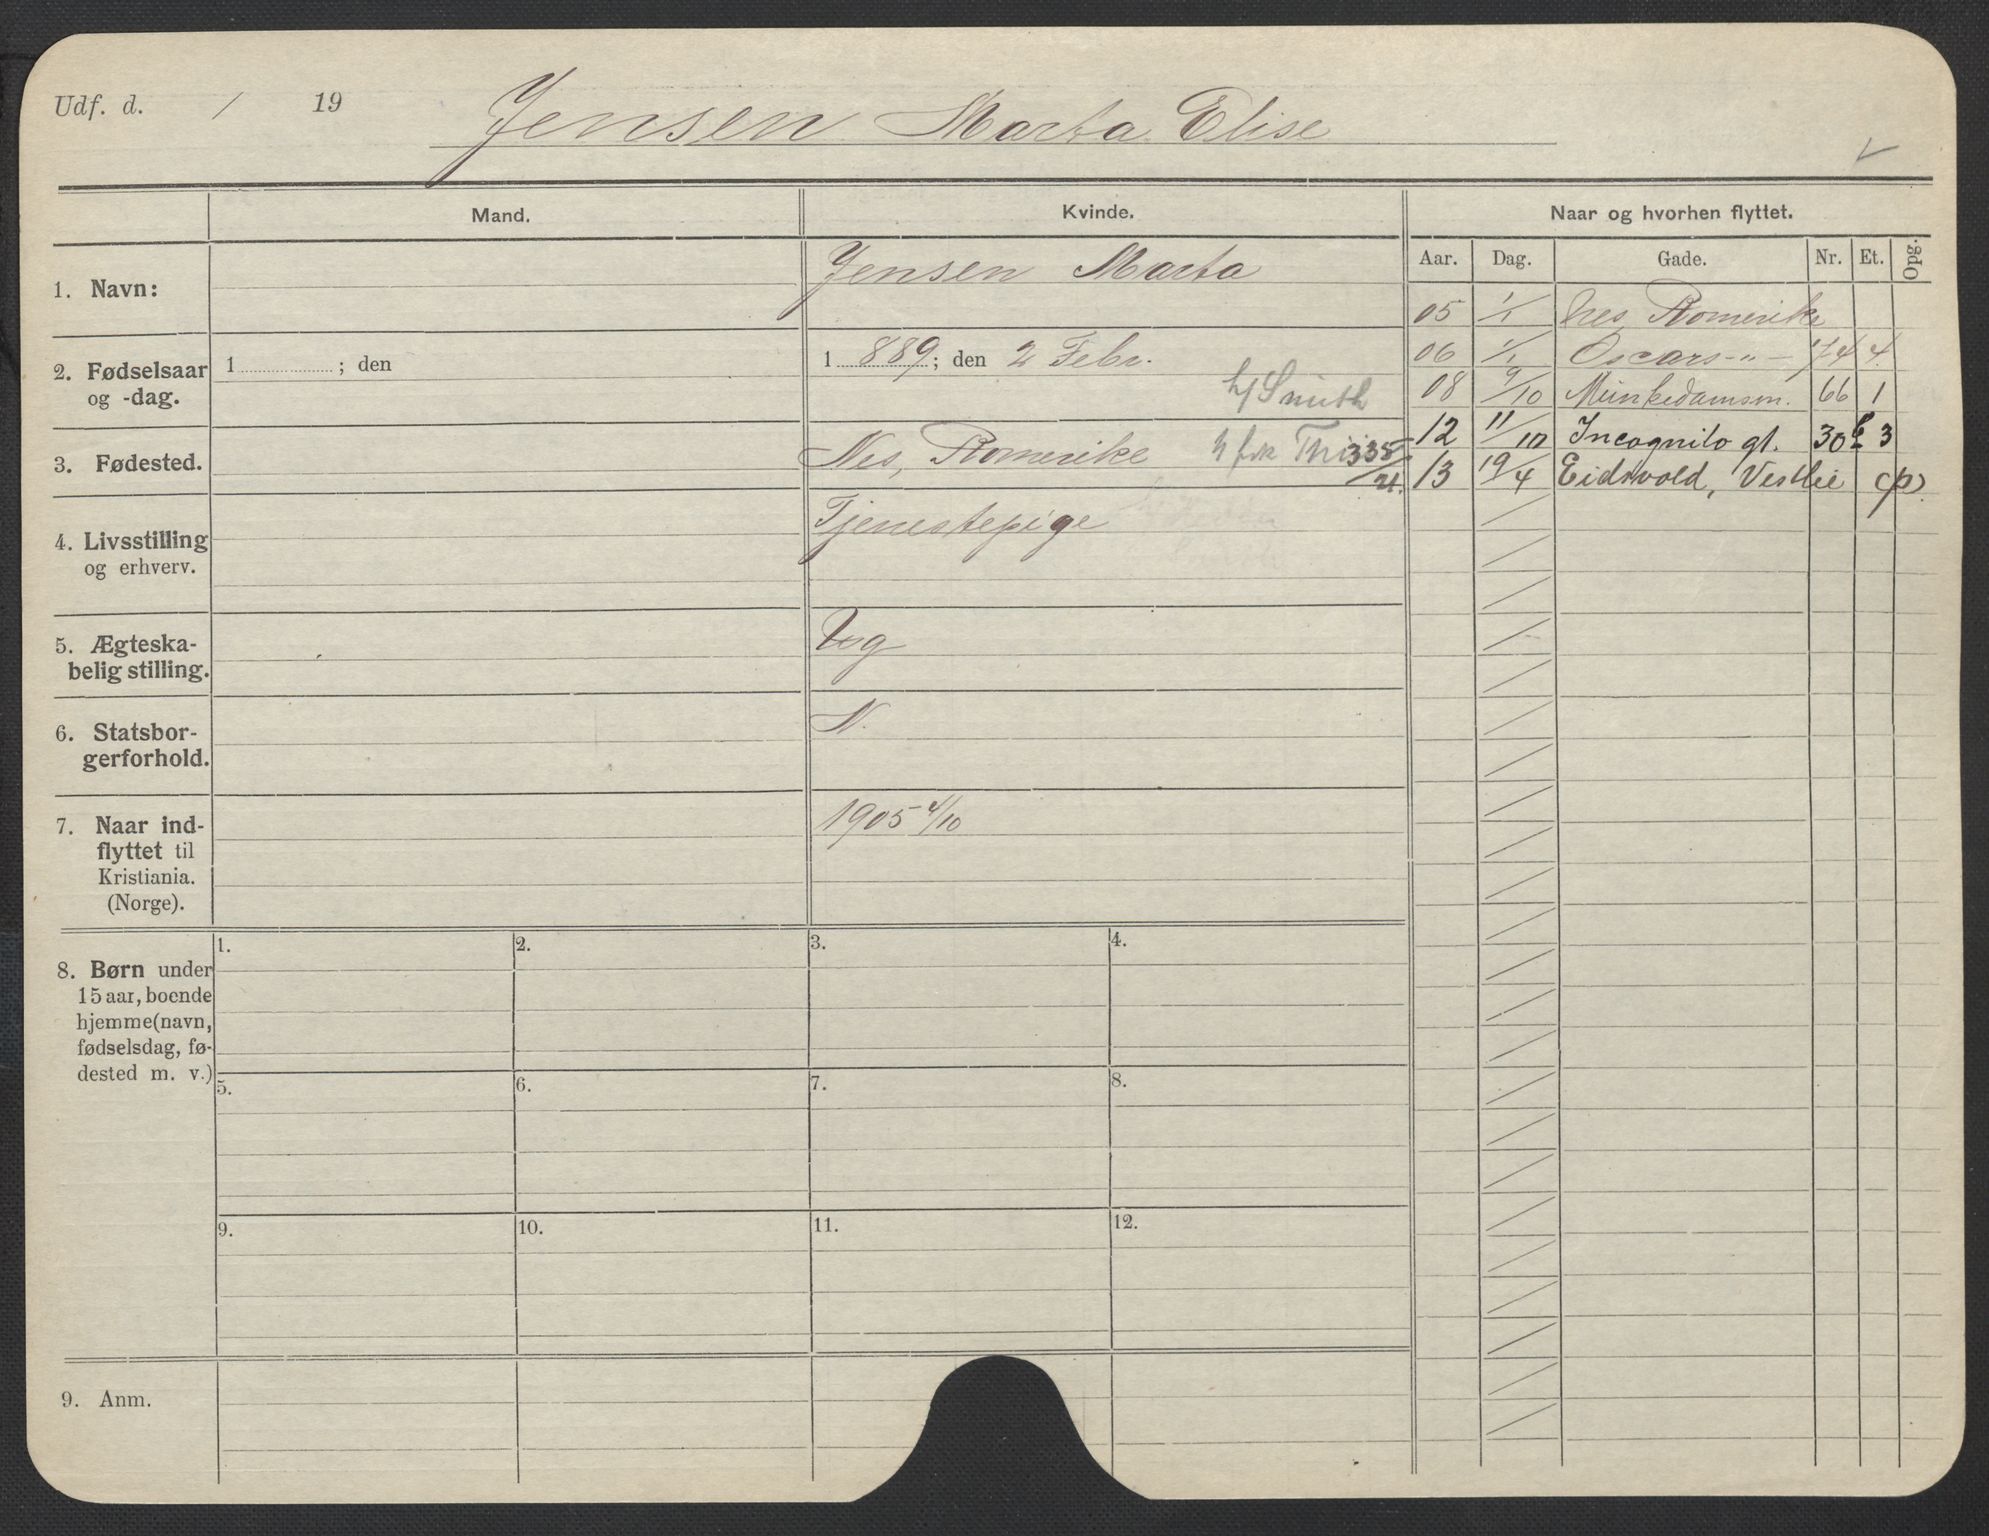 Udf. d. / 19 Jensen Marta Elise
Mand. Kvinde. Naar og hvorhen flyttet.
Aar. Dag. Gade. Nr. Et. Opg.
1. Navn: Jensen Marta
05 1/1 Nes, Romerike
2. Fødselsaar og -dag. 1 ; den 1 889; den 2 Febr.
06 1/1 Oscars - " - 74 4.
h/Smith
08 9/10 Munkedamsv. 66 1
3. Fødested. Nes, Romerike
h frk 335/21.
12 11/10 Incognito gt. 30 b 3
13 19/4 Eidsvold, Vestlie
4. Livsstilling og erhverv. Tjenestepige
5. Ægteska-
belig stilling. Ug
6. Statsbor-
gerforhold. N.
7. Naar ind-
flyttet til
Kristiania.
(Norge). 1905 4/10
8. Børn under
15 aar, boende
hjemme (navn,
fødselsdag, fø-
dested m. v.)
1. 2. 3. 4.
5. 6. 7. 8.
9. 10. 11. 12.
9. Anm.